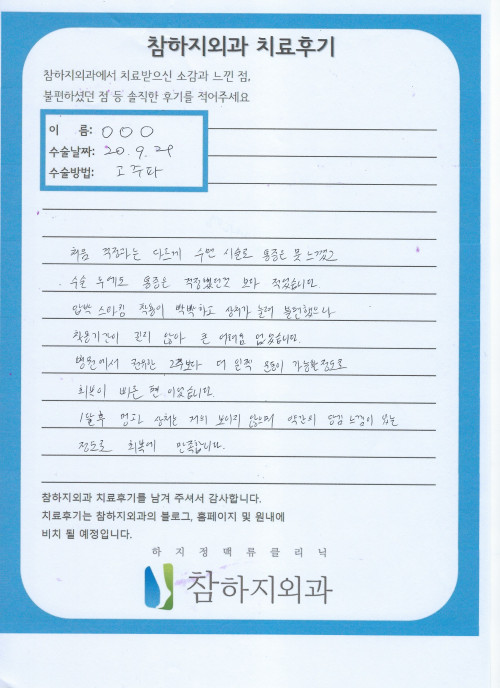 참하지외과 치료후기
참하지외과에서 치료받으신 소감과 느낀 점,
불편하셨던 점 등 솔직한 후기를 적어주세요
이 름: ○○○
수술날짜: 20. 9. 29
수술방법: 고주파
처음 걱정과는 다르게 수면 시술로 통증은 못 느꼈고
수술 후에도 통증은 걱정했던것 보다 적었습니다.
압박 스타킹 착용이 빡빡하고 상처가 눌려 불편했으나
착용기간이 길지 않아 큰 어려움 없었습니다.
병원에서 권유한 2주보다 더 일찍 운동이 가능할 정도로
회복이 빠른 편 이었습니다.
1달 후 멍과 상처는 거의 보이지 않으며 약간의 당김 느낌이 있는
정도로 회복에 만족합니다.
참하지외과 치료후기를 남겨 주셔서 감사합니다.
치료후기는 참하지외과의 블로그, 홈페이지 및 원내에
비치 될 예정입니다.
하지정맥류클리닉
참하지외과